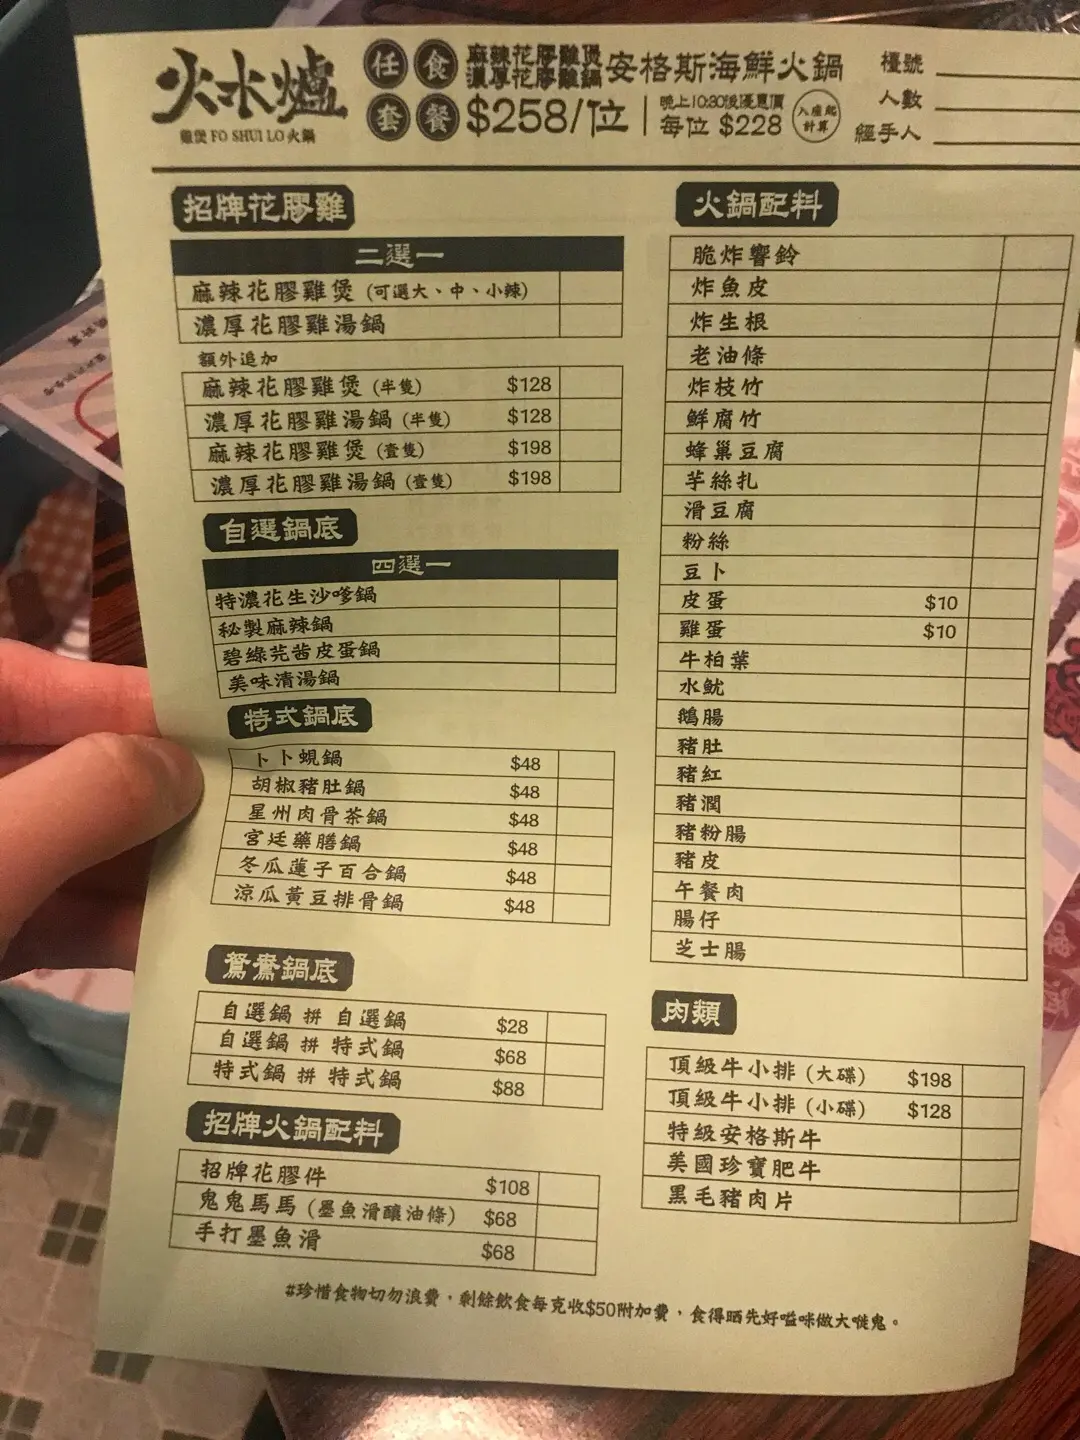 火水爐
雞煲 FO SHUI LO 火鍋
任食套餐
麻辣花膠雞煲
濃厚花膠雞鍋
安格斯海鮮火鍋
$258/位
晚上10:30後優惠價
每位 $228
入座起計算
檯號
人數
經手人
招牌花膠雞
二選一
麻辣花膠雞煲 (可選大、中、小辣)
濃厚花膠雞湯鍋
額外追加
麻辣花膠雞煲 (半隻) $128
濃厚花膠雞湯鍋 (半隻) $128
麻辣花膠雞煲 (壹隻) $198
濃厚花膠雞湯鍋 (壹隻) $198
自選鍋底
四選一
特濃花生沙嗲鍋
秘製麻辣鍋
碧綠芫茜皮蛋鍋
美味清湯鍋
特式鍋底
卜卜蜆鍋 $48
胡椒豬肚鍋 $48
星州肉骨茶鍋 $48
宮廷藥膳鍋 $48
冬瓜蓮子百合鍋 $48
涼瓜黃豆排骨鍋 $48
鴛鴦鍋底
自選鍋 拼 自選鍋 $28
自選鍋 拼 特式鍋 $68
特式鍋 拼 特式鍋 $88
招牌火鍋配料
招牌花膠件 $108
鬼鬼馬馬 (墨魚滑釀油條) $68
手打墨魚滑 $68
火鍋配料
脆炸響鈴
炸魚皮
炸生根
老油條
炸枝竹
鮮腐竹
蜂巢豆腐
芋絲扎
滑豆腐
粉絲
豆卜
皮蛋 $10
雞蛋 $10
牛柏葉
水魷
鵝腸
豬肚
豬紅
豬潤
豬粉腸
豬皮
午餐肉
腸仔
芝士腸
肉類
頂級牛小排 (大碟) $198
頂級牛小排 (小碟) $128
特級安格斯牛
美國珍寶肥牛
黑毛豬肉片
#珍惜食物切勿浪費，剩餘飲食每克收$50附加費，食得晒先好嗌咪做大嘥鬼。